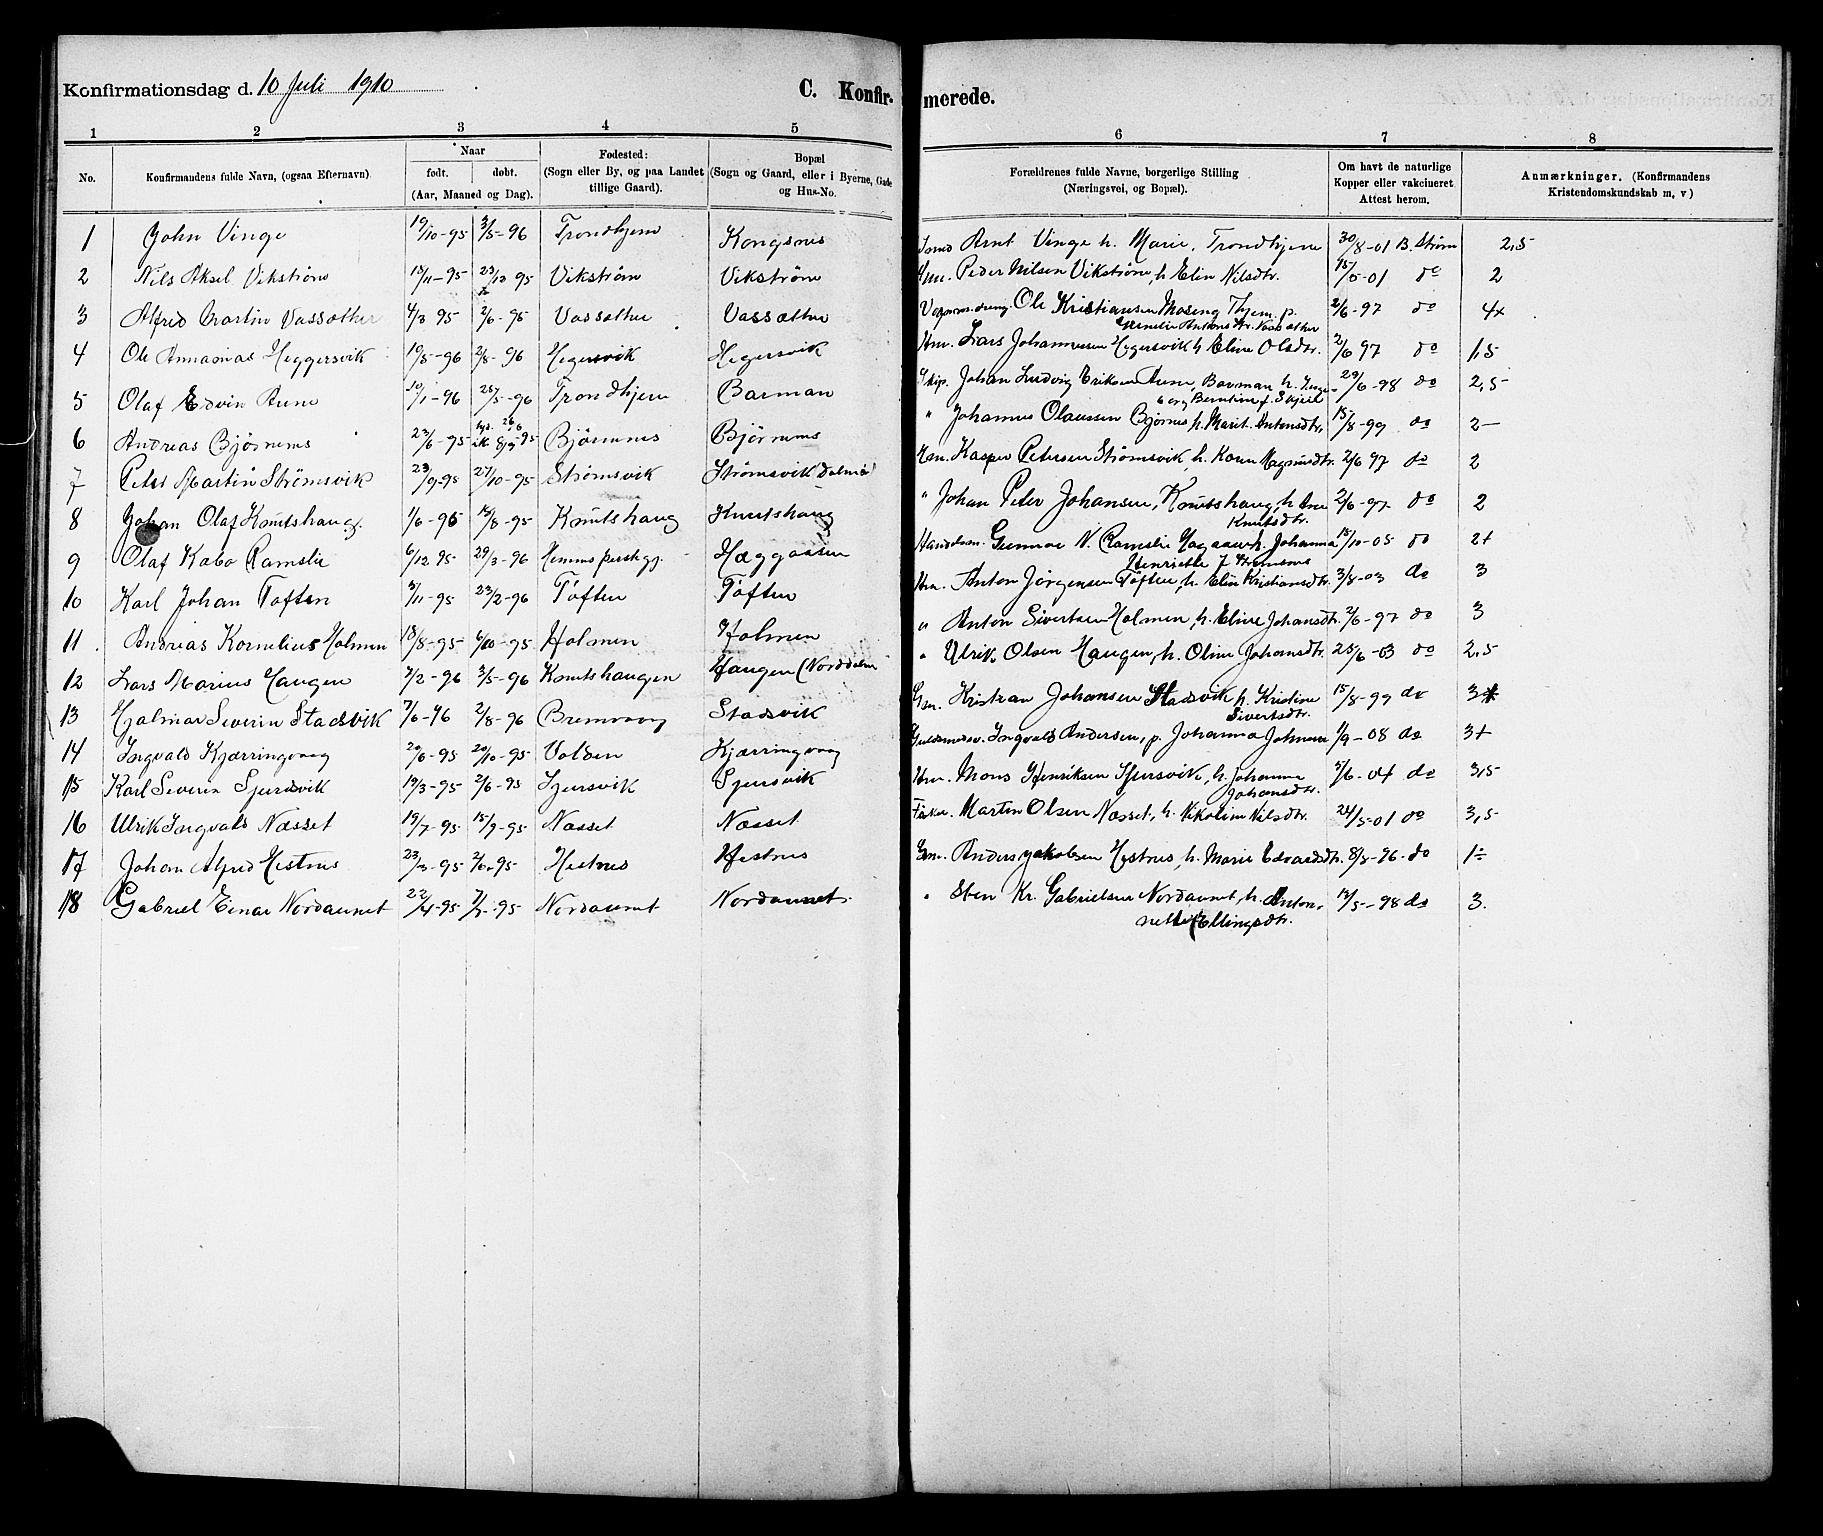 Konfirmationsdag d. 10 Juli 1910 C. Konfir- merede.
1 2 3 4 5 6 7 8
No. Konfirmandens fulde Navn, (ogsaa Efternavn) Naar født. døbt. (Aar, Maaned og Dag). Fødested: (Sogn eller By, og paa Landet tillige Gaard). Bopæl (Sogn og Gaard, eller i Byerne, Gade og Hus-No. Forældrenes fulde Navne, borgerlige Stilling (Næringsvei, og Bopæl). Om havt de naturlige Kopper eller vakcineret Attest herom. Anmærkninger. (Konfirmandens Kristendomskundskab m, v)
1 John Vinge 19/10-95 3/5-96 Trondhjem Kongsnes Arnt Vinge h. Marie, Trondhjem 30/8-01 B. Strøm 2,5
2 Nils Aksel Vikstrøm 13/11-95 Vikstrøm Vikstrøm Gm. Peder Nilsen Vikstrøm, h. Elin Nilsdtr. 15/5-01 do 2
3 Alfred Martin Vassæther 4/3 95 2/6-95 Vassæther Vassæther Ole Kristiansen Moseng Thjem. p. 2/6-97 do 4x
Antonsdtr. Vassæther
4 Ole Annanias Heggersvik 19/5-96 2/8-96 Hegersvik Hegersvik Hm. Lars Johannesen Hegersvik h Eline Olsdtr. 2/6 97 do 1,5
5 Olaf Edvin Aune 10/1-96 25/5-96 Trondhjem Barman Skip. Johan Ludvig Eriksen Aune, Barman h. 29/6-98 do 2,5
Berntine f. Skjeil
6 Andreas Bjørnnes 23/6-95 Bjørnnes Bjørnnes " Johannes Olaussen Bjørnes h. Marit Antonsdtr. 15/8-99 do 2-
7 Peter Martin Strømsvik 23/9-95 27/10-95 Strømsvik Strømsvik Dolmø Gm. Kasper Petersen Strømsvik, h. Karen Magnusdtr. 2/6 97 do 2
8 Johan Olaf Knutshaug. 1/6-95 18/8-95 Knutshaug Knutshaug " Johan Peter Johansen, Knutshaug, h. 2/6-97 do 2
Knutsdtr.
9 Olaf Kabo Ramslie 6/12 95 29/3-96 Hemne prestgj. Hæggaasen Handelsm. Gunnar N. Ramslie h. Johanna 15/10-05 do 2+
Henriette f
10 Karl Johan Toften 3/11-95 23/2-96 Tøften Tøften Hm. Anton Jørgensen Tøften, h. Elin Kristiansdtr. 3/8-03 do 3
11 Andreas Kornelius Holmen 18/8-95 6/10-95 Holmen Holmen " Anton Sivertsen Holmen, h. Eline Johansdtr. 2/6-97 do 3
12 Lars Marius Haugen 7/2-96 3/5-96 Knutshaugen Haugen (Norddolm " Ulrik Olsen Haugen, h. Oline Johansdtr. 25/6-03 do 2,5
13 Hjalmar Severin Stadsvik 7/6-96 2/8-96 Bremvaag Stadsvik Gm. Kristian Johansen Stadsvik h. Kristine 15/8-99 do
Sivertsdtr.
14 Ingvald Kjærringvaag 20/6-95 20/10-95 Volden Kjærringvaag Ingvald Andersen, p. Johanna Johnsen 1/9-08 do 3+
15 Karl Severin Sjursvik 19/3-95 2/6-95 Sjursvik Sjursvik Hm. Mons Henriksen Sjursvik, h. Johanna 5/6-04 do 3,5
Johansdtr.
16 Ulrik Ingvald Næsset 19/7-95 15/9-95 Næsset Næsset Fisker. Martin Olsen Næsset, h. Nikoline Nilsdtr. 24/5-01 do 3,5
17 Johan Alfred Hestnes 23/3-95 Hestnes Hestnes Gm. Anders Jakobsen Hestnes, h. Marie Edvardsdtr. 8/8-96 do 1÷
18 Gabriel Einar Nordaunet 22/4-95 Nordaunet Nordaunet. " Sten Kr. Gabrielsen Nordaunet, h. Anton- 13/5-98 do 3.
nette Ellingsdtr.